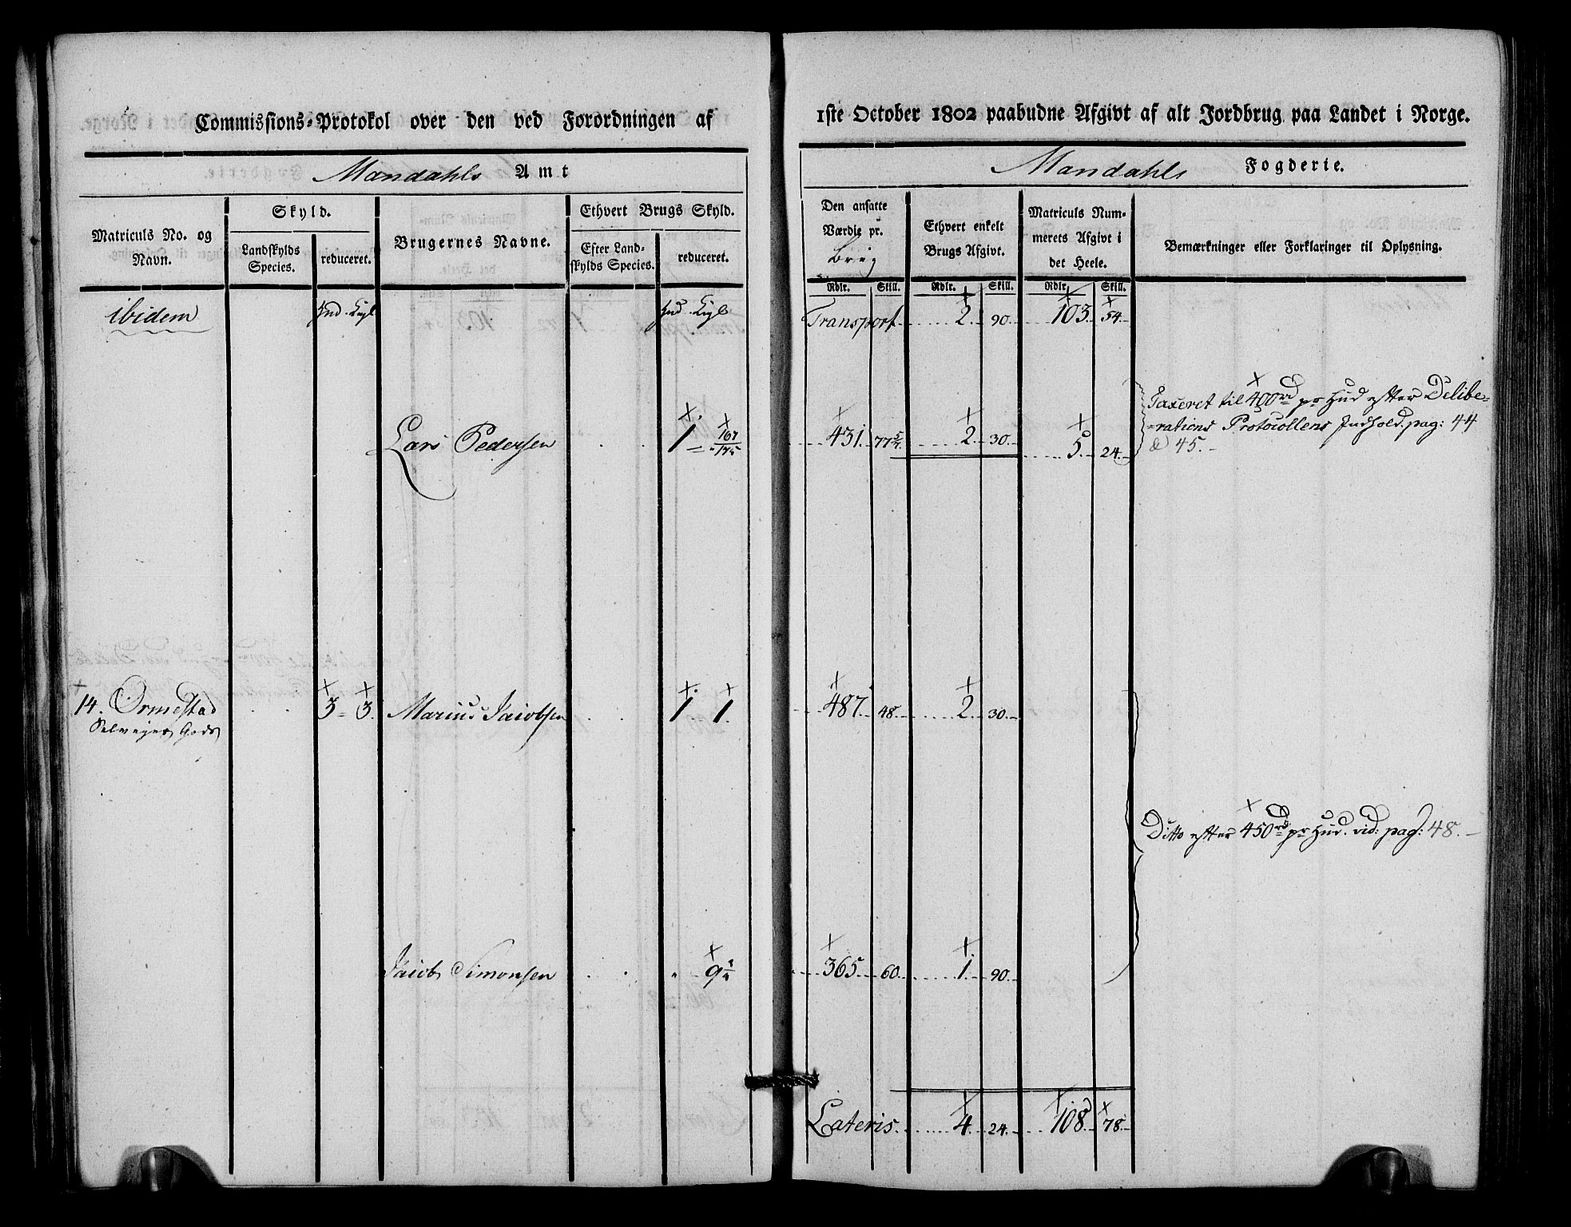 Commissions-Protokol over den ved Forordningen af
Mandahls Amt
Skyld.
Ethvert Brugs Skyld.
Matriculs No. og Navn.
Landskylds Species.
reduceret.
Brugernes Navne.
Efter Landskylds Species.
reduceret.
ibidem Hud. Kigl Hud. Kigl
Lars Pedersen 1 167/175
14. Ormestad 3 3 Marius Jacobsen 1 1
Selvejer Gods
Jacob Simonsen " 9
1ste October 1802 paabudne Afgivt af alt Jordbrug paa Landet i Norge.
Mandahls Fogderie.
Den ansatte Værdie pr. brug
Ethvert enkelt Brugs Afgivt.
Matriculs Nummerets Afgivt i det Heele.
Bemærkninger eller Forklaringer til Oplysning.
Rdlr. Skill. Rdlr. Skill. Rdlr. Skill.
Transport 2 90 103 54
Taxeret til 400rd pr Hud efter Delibe-
431 77 2 30 5 24 -rations Protocollens Indhold, pag: 44
& 45.
487 48 2 30
Ditto efter 450rd pr Hud. vid: pag: 48.
365 60 1 90
Lateris 4 24 108 78